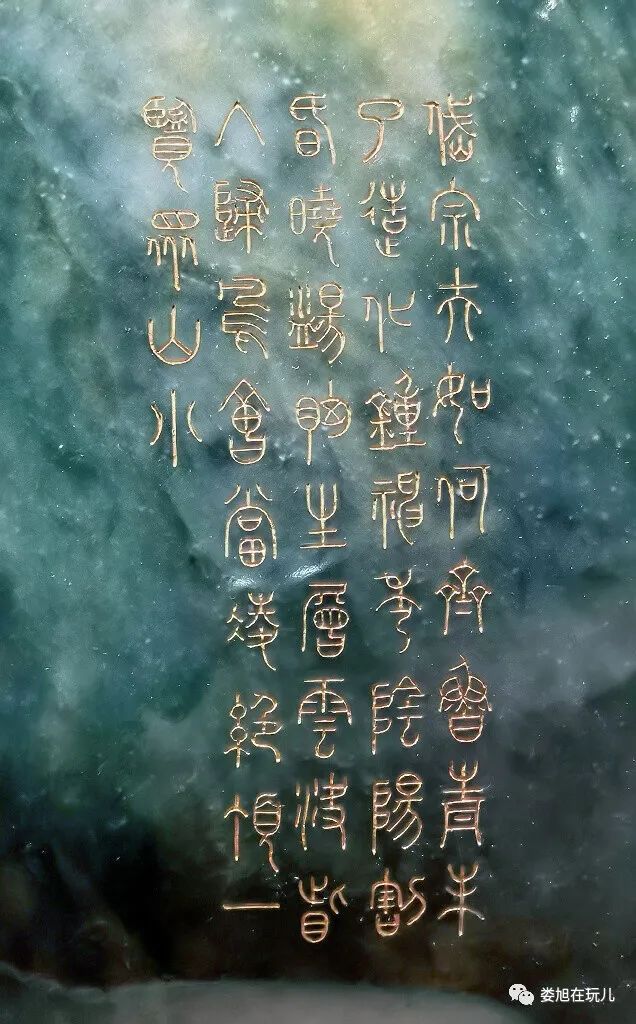 岱宗夫如何齊魯青未
了造化鐘神秀陰陽割
昏曉盪胸生層雲決眥
入歸鳥會當凌絕頂一
覽眾山小
娄旭在玩儿